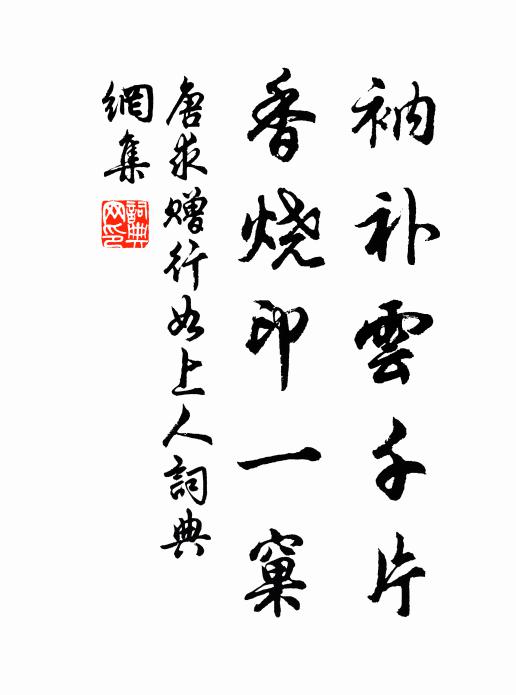 衲补雲千片
香烧印一窠
唐求赠行如上人詞典
網集
詞典
网印